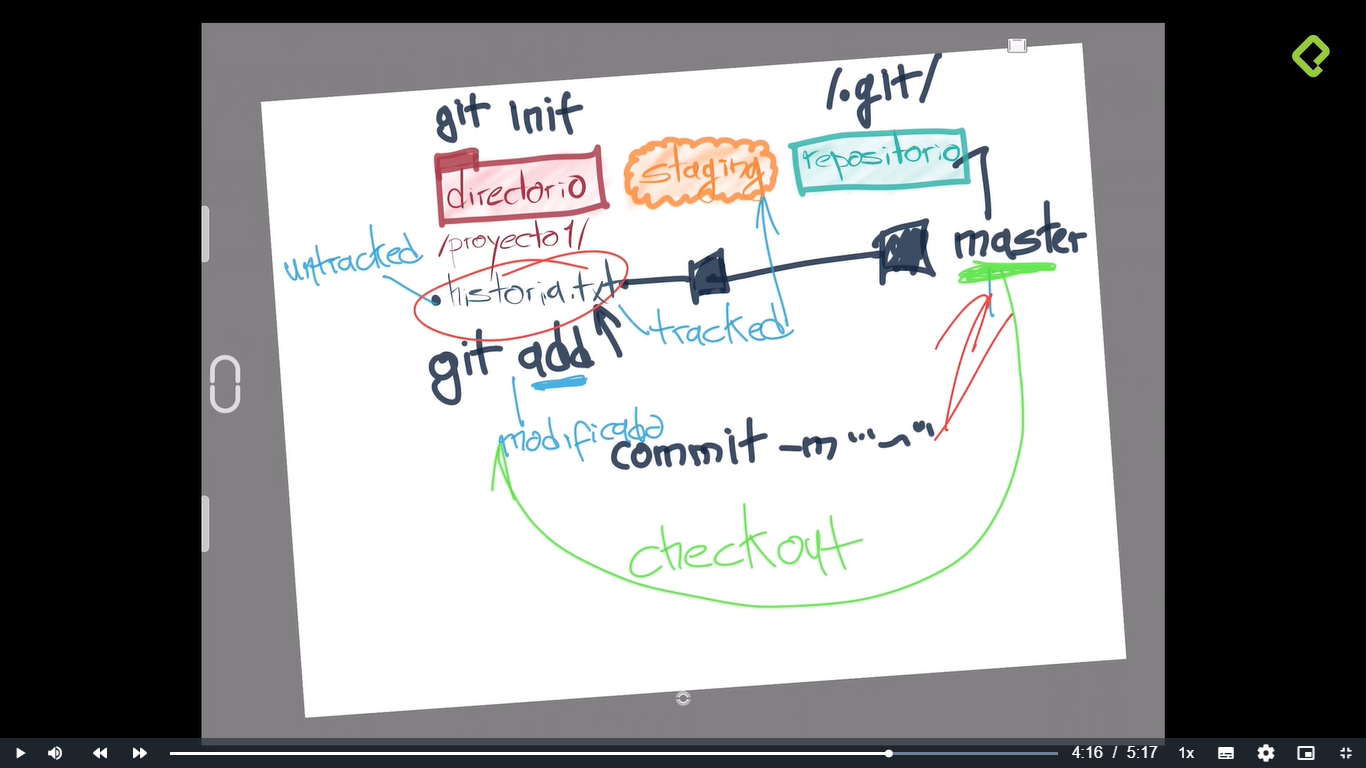 git init
/.git/
directorio
staging
repositorio
/proyecto1/
master
untracked
historia.txt
tracked
git add
modificado
commit -m "~"
checkout
4:16 / 5:17
1x